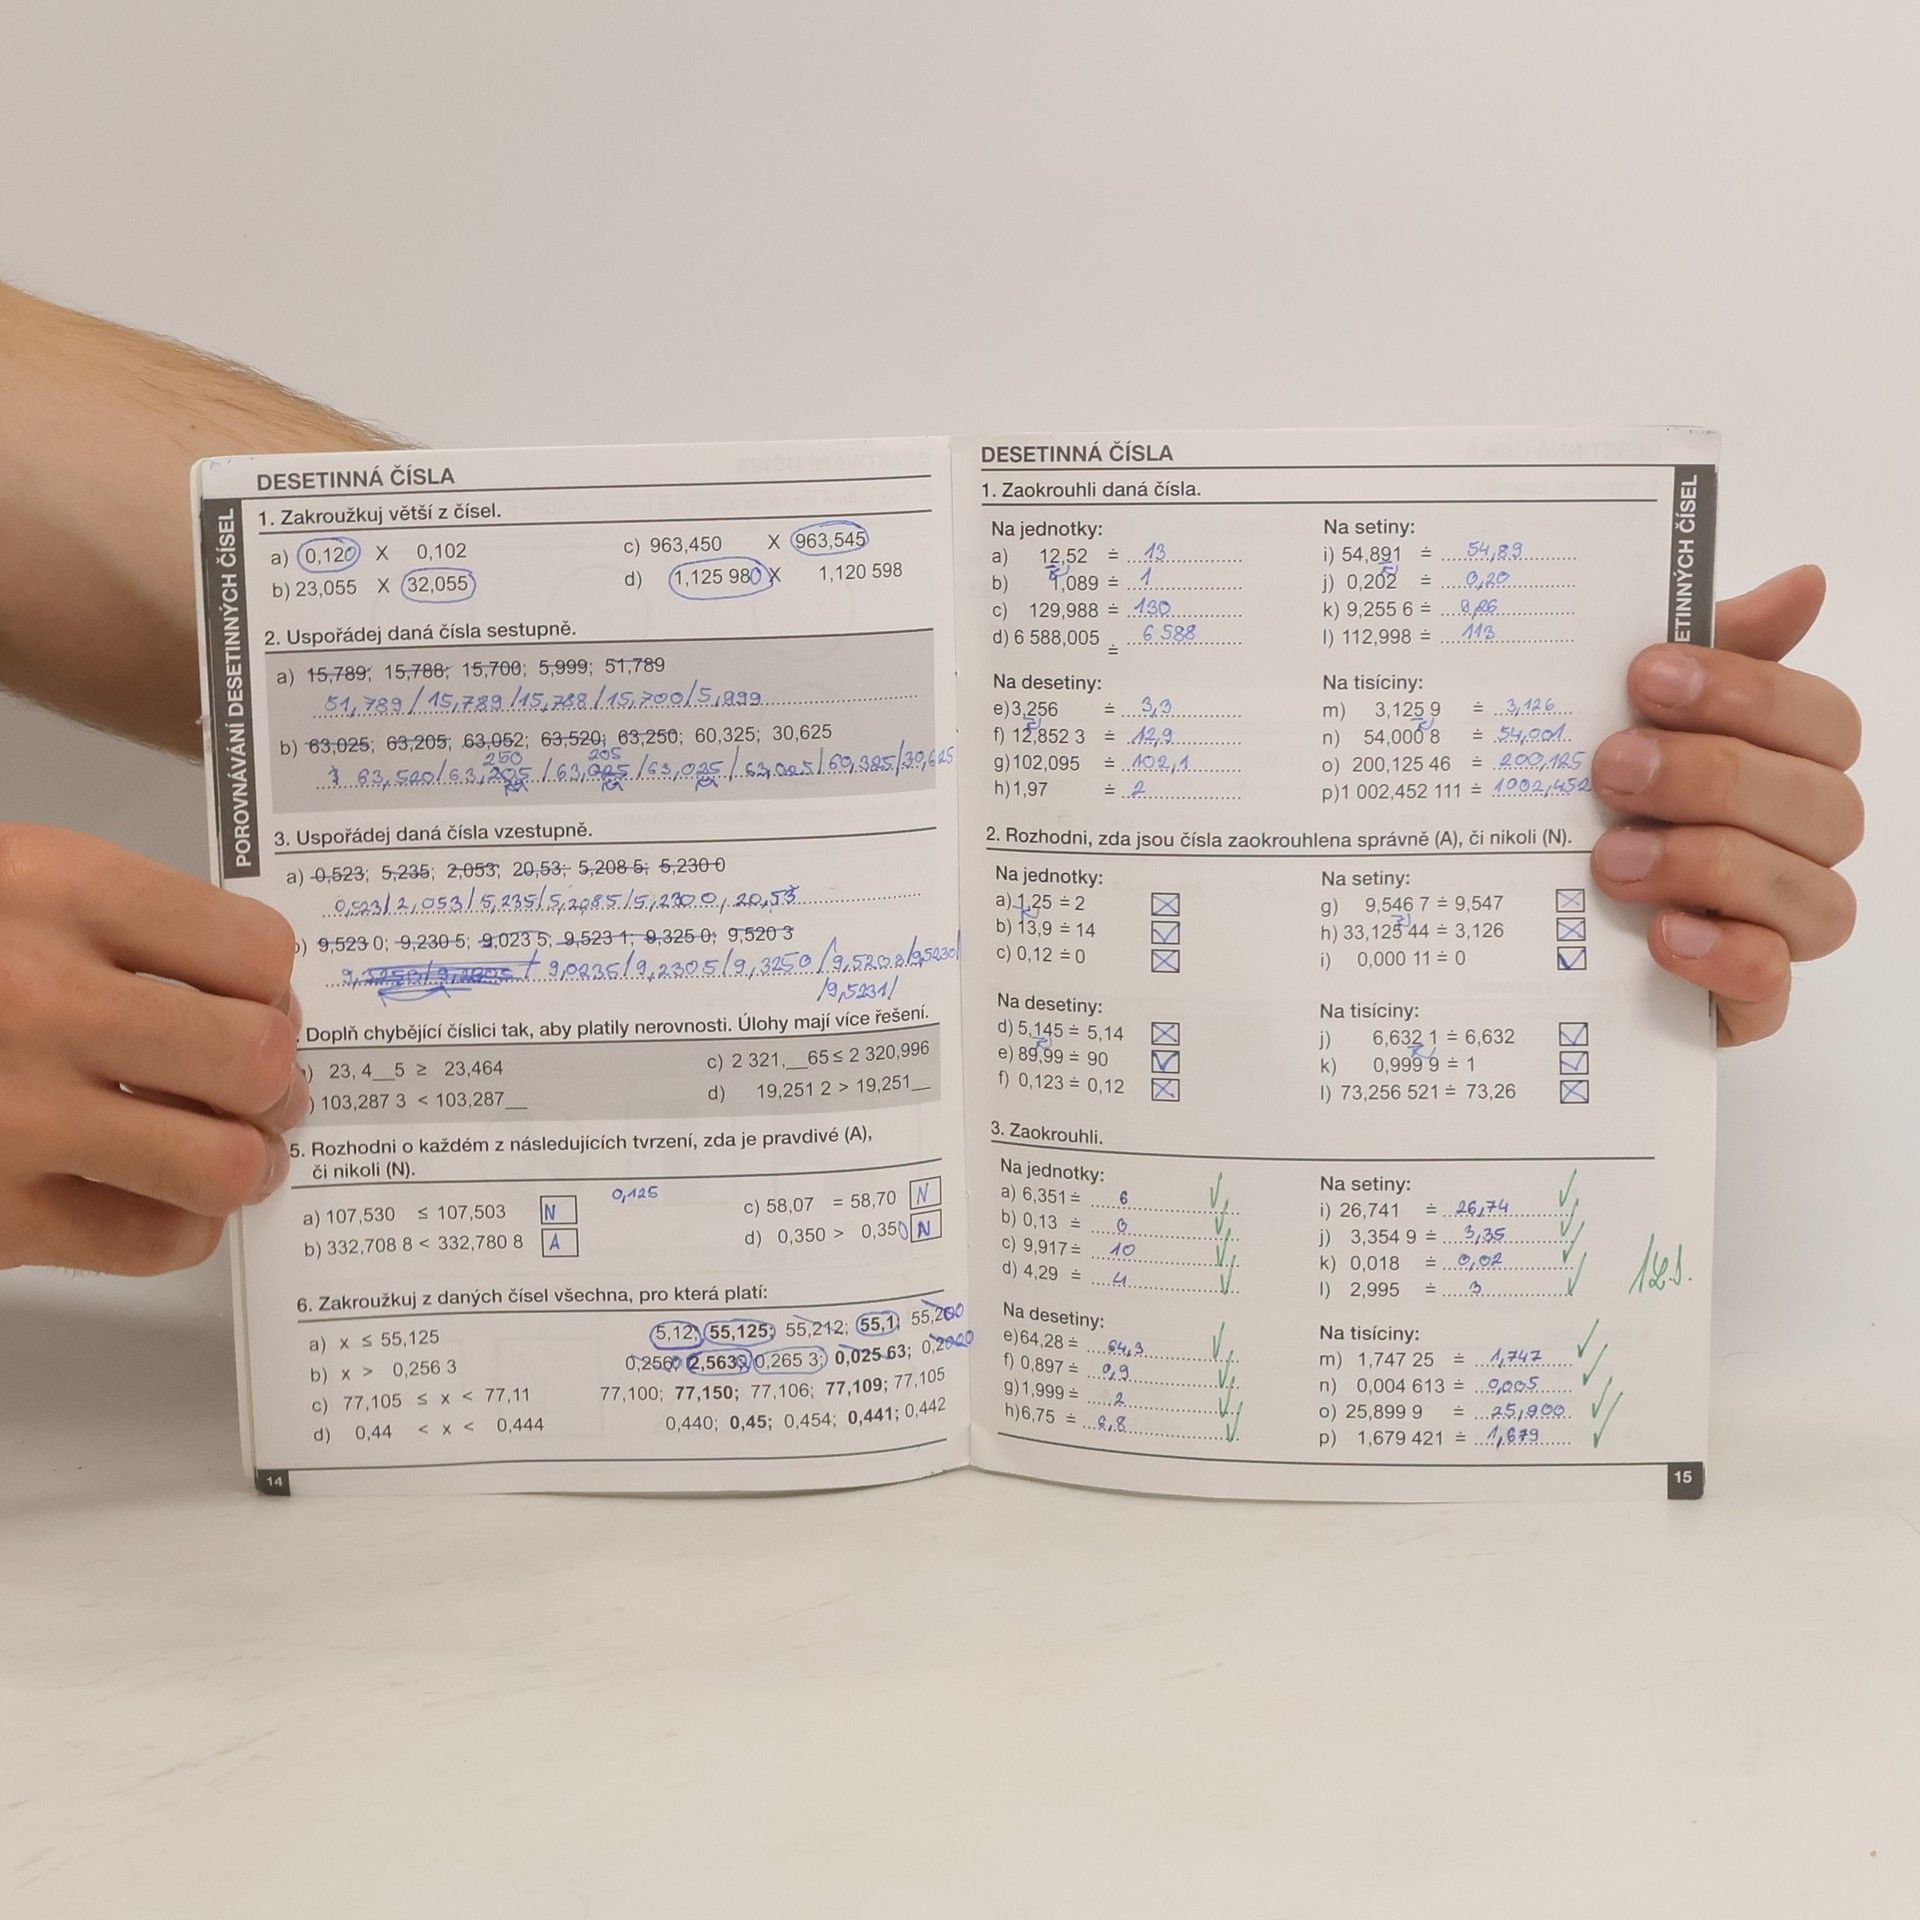 DESETINNÁ ČÍSLA
POROVNÁVÁNÍ DESETINNÝCH ČÍSEL
1. Zakroužkuj větší z čísel.
a) 0,120 X 0,102
c) 963,450 X 963,545
b) 23,055 X 32,055
d) 1,125 980 X 1,120 598
2. Uspořádej daná čísla sestupně.
a) 15,789; 15,788; 15,700; 5,999; 51,789
51,789/15,789/15,788/15,700/5,999
b) 63,025; 63,205; 63,052; 63,520; 63,250; 60,325; 30,625
250 205
63,520/63,205/63,025/63,025/63,025/60,325/30,625
3. Uspořádej daná čísla vzestupně.
a) 0,523; 5,235; 2,053; 20,53; 5,208 5; 5,230 0
0,523/2,053/5,235/5,2085/5,2300, 20,53
) 9,523 0; 9,230 5; 9,023 5; 9,523 1; 9,325 0; 9,520 3
/ 9,0235/9,2305/9,3250/9,5203/9,5230/
/9,5231/
. Doplň chybějící číslici tak, aby platily nerovnosti. Úlohy mají více řešení.
) 23, 4__5 ≥ 23,464
c) 2 321,__65 ≤ 2 320,996
) 103,287 3 < 103,287__
d) 19,251 2 > 19,251__
5. Rozhodni o každém z následujících tvrzení, zda je pravdivé (A),
či nikoli (N).
0,125
a) 107,530 ≤ 107,503 N
c) 58,07 = 58,70 N
b) 332,708 8 < 332,780 8 A
d) 0,350 > 0,350 N
6. Zakroužkuj z daných čísel všechna, pro která platí:
a) x ≤ 55,125 5,12; 55,125; 55,212; 55,1; 55,200
b) x > 0,256 3 0,256; 2,563; 0,265 3; 0,025 63; 0,2000
c) 77,105 ≤ x < 77,11 77,100; 77,150; 77,106; 77,109; 77,105
d) 0,44 < x < 0,444 0,440; 0,45; 0,454; 0,441; 0,442
14
DESETINNÁ ČÍSLA
ETINNÝCH ČÍSEL
1. Zaokrouhli daná čísla.
Na jednotky:
a) 12,52 ≐ 13
b) 1,089 ≐ 1
c) 129,988 ≐ 130
d) 6 588,005 ≐ 6 588
Na setiny:
i) 54,891 ≐ 54,89
j) 0,202 ≐ 0,20
k) 9,255 6 ≐ 9,26
l) 112,998 ≐ 113
Na desetiny:
e) 3,256 ≐ 3,3
f) 12,852 3 ≐ 12,9
g) 102,095 ≐ 102,1
h) 1,97 ≐ 2
Na tisíciny:
m) 3,125 9 ≐ 3,126
n) 54,000 8 ≐ 54,001
o) 200,125 46 ≐ 200,125
p) 1 002,452 111 ≐ 1002,452
2. Rozhodni, zda jsou čísla zaokrouhlena správně (A), či nikoli (N).
Na jednotky:
a) 1,25 ≐ 2
b) 13,9 ≐ 14
c) 0,12 ≐ 0
Na setiny:
g) 9,546 7 ≐ 9,547
h) 33,125 44 ≐ 3,126
i) 0,000 11 ≐ 0
Na desetiny:
d) 5,145 ≐ 5,14
e) 89,99 ≐ 90
f) 0,123 ≐ 0,12
Na tisíciny:
j) 6,632 1 ≐ 6,632
k) 0,999 9 ≐ 1
l) 73,256 521 ≐ 73,26
3. Zaokrouhli.
Na jednotky:
a) 6,351 ≐ 6
b) 0,13 ≐ 0
c) 9,917 ≐ 10
d) 4,29 ≐ 4
Na setiny:
i) 26,741 ≐ 26,74
j) 3,354 9 ≐ 3,35
k) 0,018 ≐ 0,02
l) 2,995 ≐ 3
Na desetiny:
e) 64,28 ≐ 64,3
f) 0,897 ≐ 0,9
g) 1,999 ≐ 2
h) 6,75 ≐ 6,8
Na tisíciny:
m) 1,747 25 ≐ 1,747
n) 0,004 613 ≐ 0,005
o) 25,899 9 ≐ 25,900
p) 1,679 421 ≐ 1,679
15